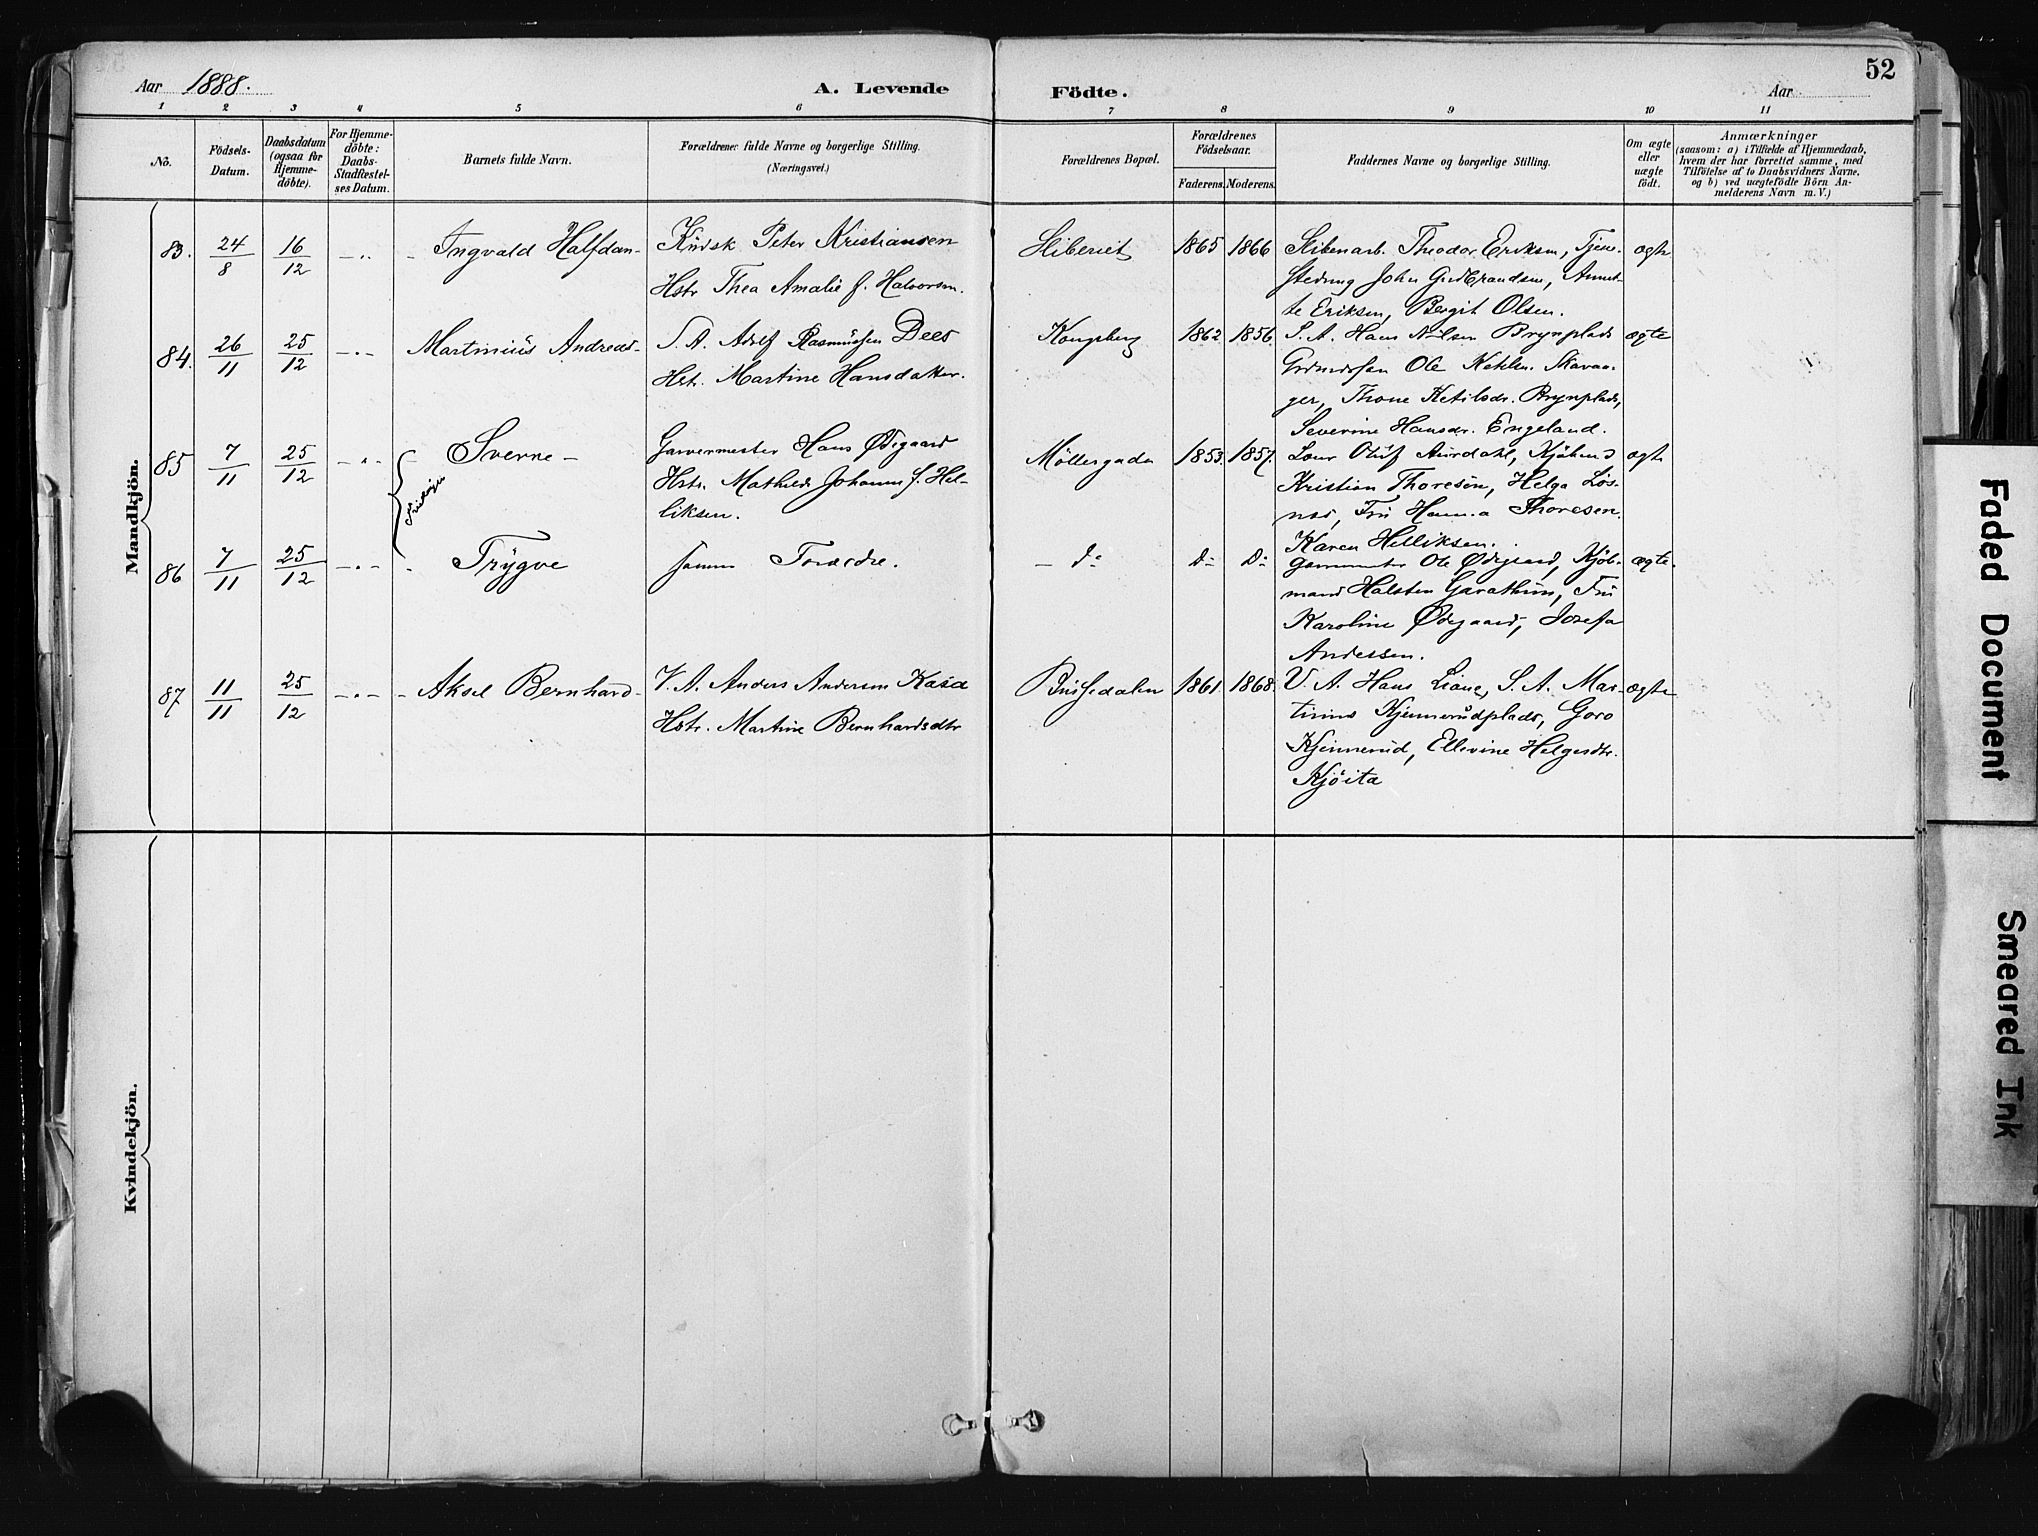 52
Aar 1888.
A. Levende
Födte.
Aar
1 2 3 4 5 6 7 8 9 10 11
No.
Födsels-
Datum.
Daabsdatum
(ogsaa for
Hjemme-
döbte).
For Hjemme-
döbte:
Daabs-
Stadfæstel-
ses Datum.
Barnets fulde Navn.
Forældrenes fulde Navne og borgerlige Stilling.
(Næringsvei.)
Forældrenes Bopæl.
Forældrenes
Födselsaar.
Faderens. Moderens.
Faddernes Navne og borgerlige Stilling.
Om ægte
eller
uægte
födt.
Anmærkninger
(saasom: a) i Tilfælde af Hjemmedaab,
hvem der har forrettet samme, med
Tilföielse af to Daabsvidners Navne,
og b) ved uægtefödte Börn An-
melderens Navn m.V.)
Mandkjön.
83. 24/8 16/12 Ingvald Halfdan
Peter Kristiansen
Hstr Thea Amalie f. Halvorsen.
1865 1866
Theodor Eriksen, Tjene-
John Gudbrandsen, Annet-
te Eriksen, Bergit Olsen.
ægte
84. 26/11 25/12 Martinius Andreas
S. A. Adolf Rasmussen Dees
Hst. Martine Hansdatter.
Kongsberg 1862 1856.
S. A. Hans Nilsen Brynplads
Ole Ketilsn. Skavan-
ger, Thone Ketilsdr. Brynplads,
Severine Hansdr. Engeland.
ægte
85 7/11 25/12 Sverre
Garvermester Hans Ødegaard
Hstr. Mathilde Johanne f. Hel-
liksen.
Möllergada 1853. 1857.
Oluf Aurdahl, Kjöbmd
Kristian Thoresen, Helga Lös-
nes, Fru Hanna Thoresen.
Karen Helliksen.
ægte
86 7/11 25/12 Trygve
samme Forældre.
do Do Do
Garvermester Ole Ødegaard, Kjöb-
mand Halsten Garathun, Fru
Karoline Ødegaard, Josefa
Anderssen.
ægte.
87 11/11 25/12 Aksel Bernhard
V. A. Anders Andersen Kasa
Hstr. Martine Bernhardsdtr
Bussedalen 1861. 1868.
V. A. Hans Liane, S. A. Mar-
tinius Kjennerudplads, Goro
Kjennerud, Ellevine Helgesdtr.
Kjöita
ægte
Kvindekjön.
Faded Document
Smeared Ink